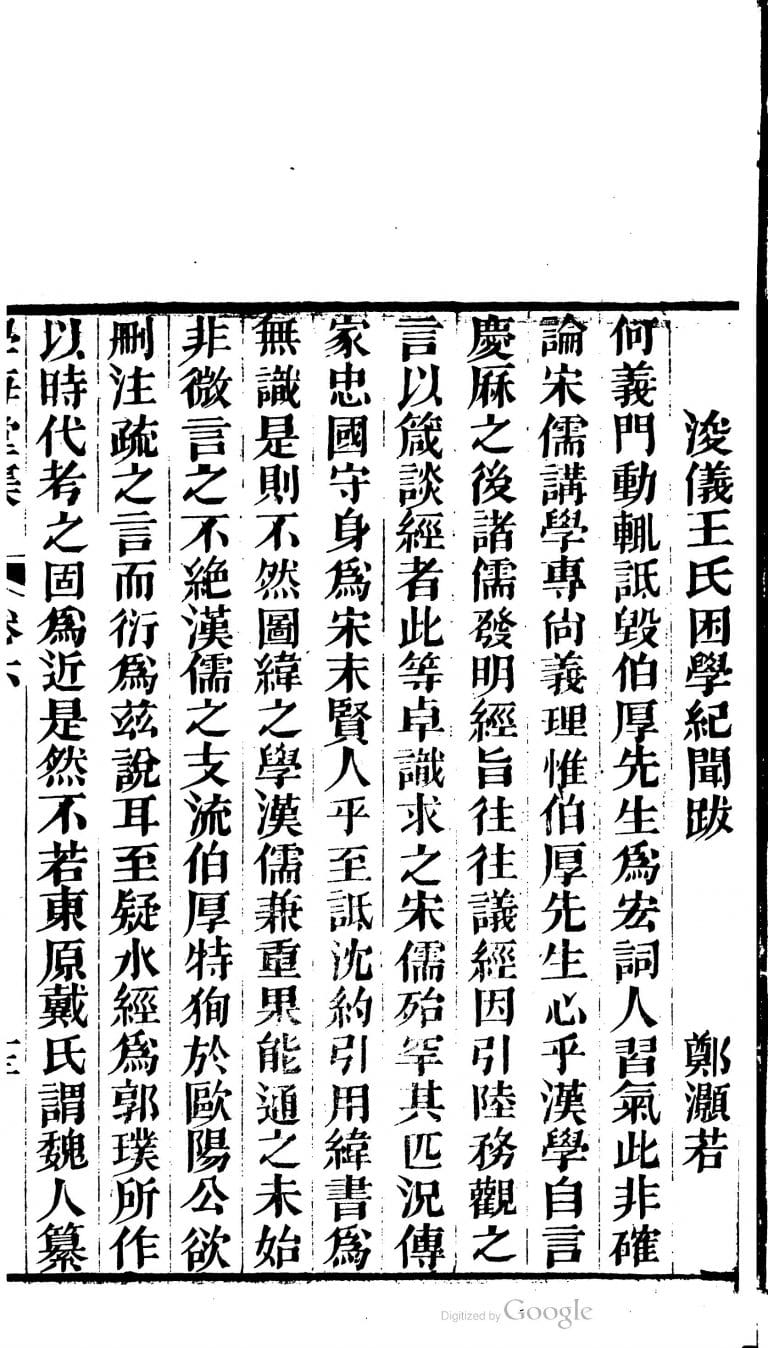 浚儀王氏困學紀聞跋 鄭灝若
何義門動輒詆毀伯厚先生爲宏詞人習氣此非確
論宋儒講學專尙義理惟伯厚先生心乎漢學自言
慶厤之後諸儒發明經旨往往議經因引陸務觀之
言以箴談經者此等卓識求之宋儒殆罕其匹況傳
家忠國守身爲宋末賢人乎至詆沈約引用緯書爲
無識是則不然圖緯之學漢儒兼重果能通之未始
非微言之不絕漢儒之支流伯厚特狥於歐陽公欲
刪注疏之言而衍爲茲說耳至疑水經爲郭璞所作
以時代考之固爲近是然不若東原戴氏謂魏人纂
學海堂集 卷六
Digitized by Google